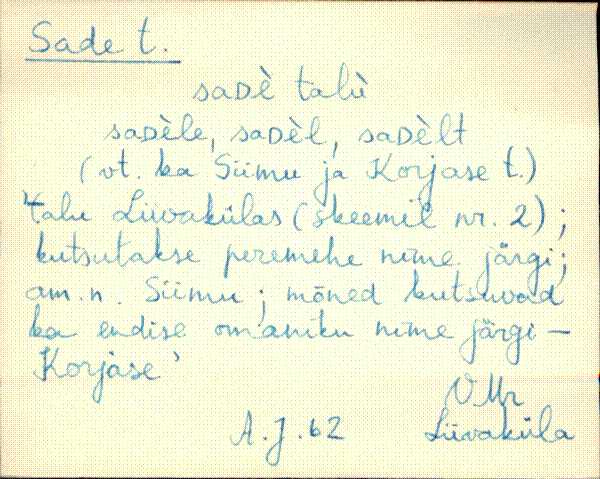 Sade t.
saᴅè talù
saᴅèle, saᴅèl, saᴅèlt
(vt. ka Siimu ja Korjase t.)
'talu Liivakülas (skeemil nr. 2);
kutsutakse peremehe nime järgi;
am.n. Siimu; mõned kutsuvad
ka endise omaniku nime järgi –
Korjase'
VMr
A.J. 62 Liivaküla